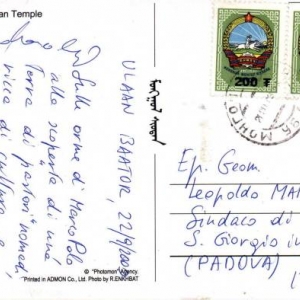 an Temple
ULAAN BAATOR, 22/9/200
Sulle orme di Marco Polo
alla scoperta di una
Terra di pastori nomadi,
ricca di cultura e
200 ₮
МОНГО
Eg. Geom.
Leopoldo MA
Sindaco di
S. Giorgio in
(PADOVA)
© "Photomon" Agency
Printed in ADMON Co., Ltd. Photo by R.ENKHBAT